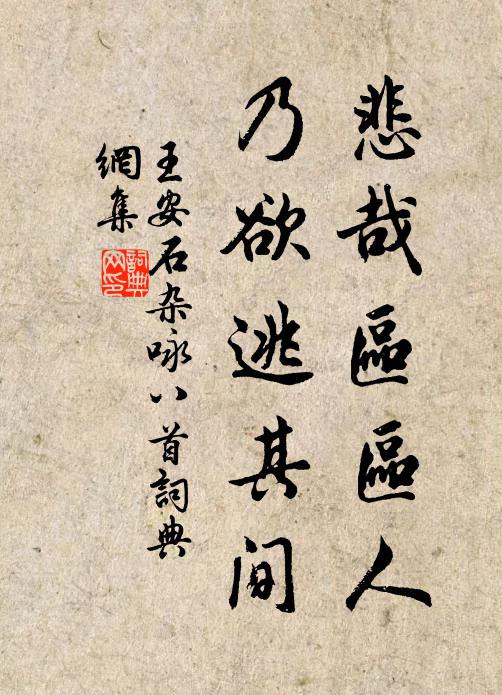 悲哉區區人
乃欲逃其间
王安石杂咏八首詞典
網集
詞典網印